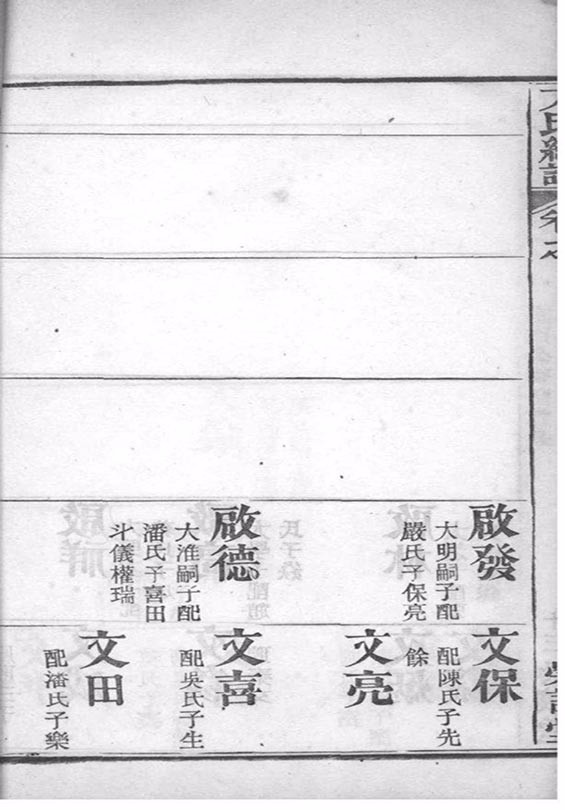 氏總譜
卷之
啟發
大明嗣子配
嚴氏子保亮
啟德
大淮嗣子配
潘氏子喜田
斗儀權瑞
文保
配陳氏子先
餘
文亮
文喜
配吳氏子生
文田
配潘氏子樂